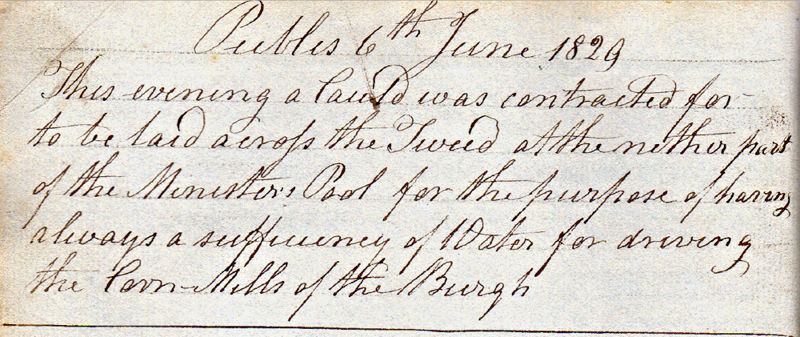 Peebles 6th June 1829
This evening a Cauld was contracted for
to be laid across the Tweed at the nether part
of the Ministers Pool for the purpose of having
always a sufficiency of Water for driving
the Corn-Mills of the Burgh